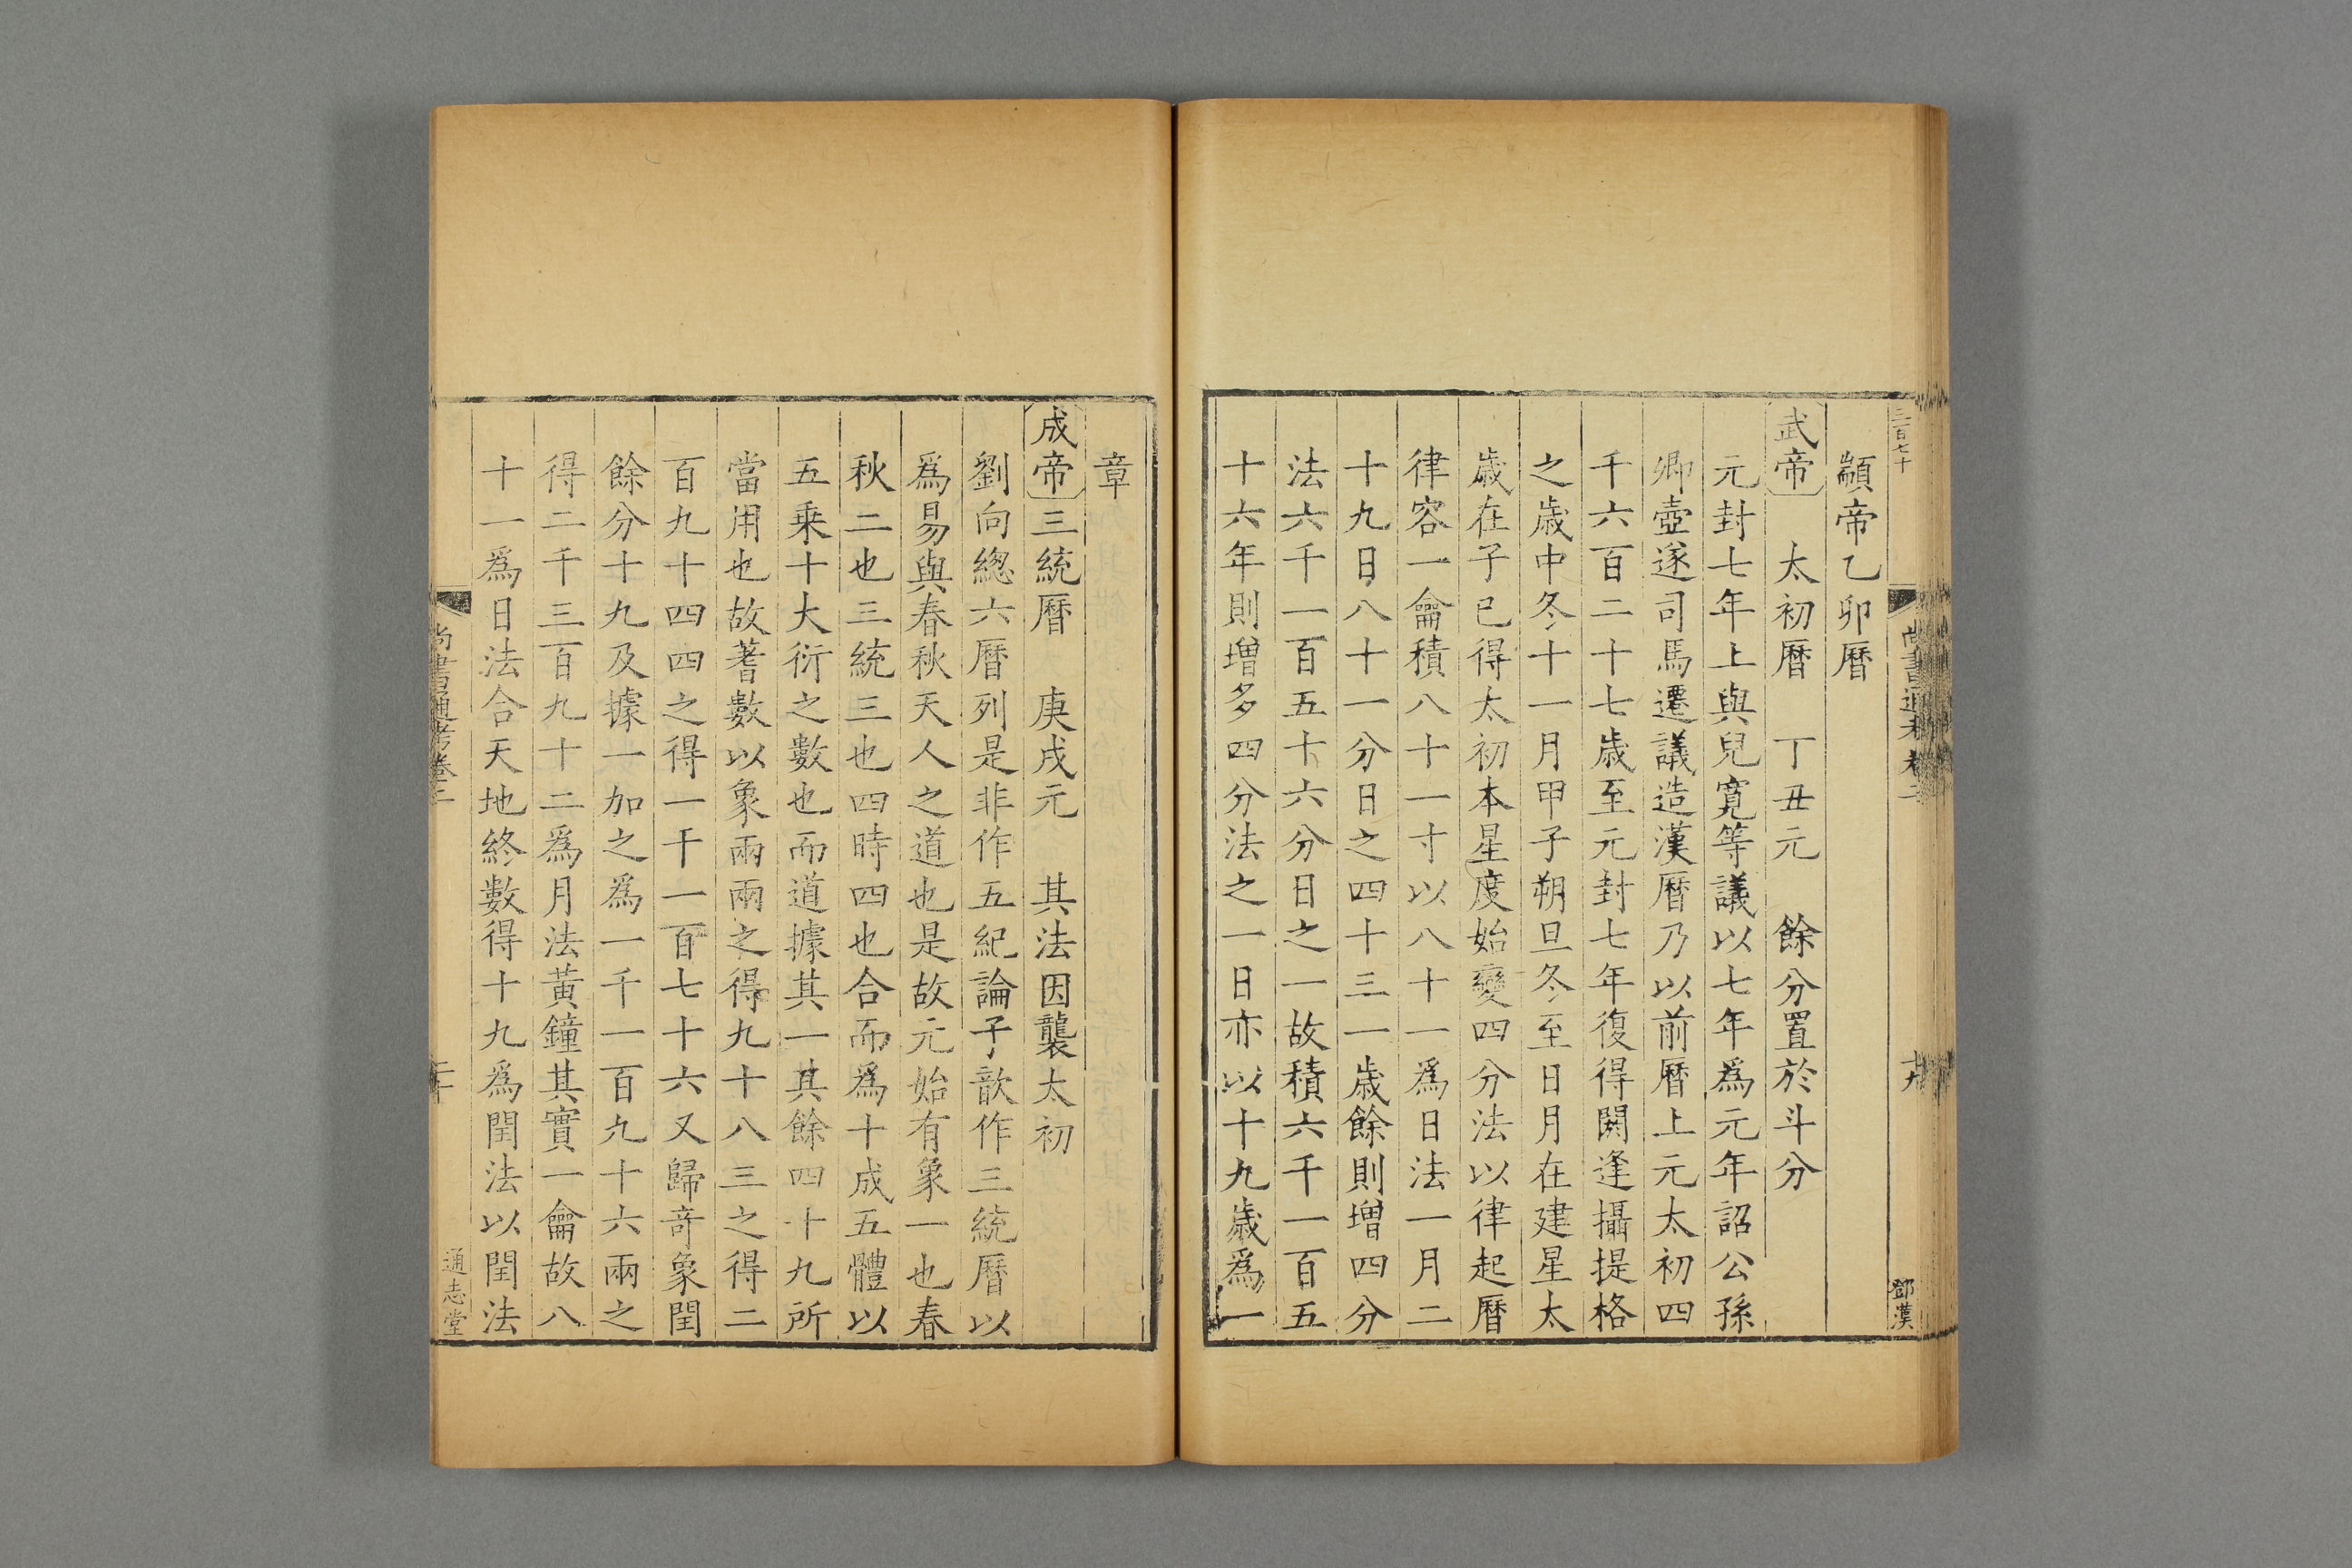 三百七十
尚書通考卷二
十九
鄧漢
顓帝乙卯曆
武帝　太初曆　丁丑元　餘分置於斗分
元封七年上與兒寬等議以七年爲元年詔公孫
卿壺遂司馬遷議造漢曆乃以前曆上元太初四
千六百二十七歲至元封七年復得閼逢攝提格
之歲中冬十一月甲子朔旦冬至日月在建星太
歲在子已得太初本星度始變四分法以律起曆
律容一龠積八十一寸以八十一爲日法一月二
十九日八十一分日之四十三一歲餘則增四分
法六千一百五十六分日之一故積六千一百五
十六年則增多四分法之一日亦以十九歲爲一
章
成帝三統曆　庚戌元　其法因襲太初
劉向總六曆列是非作五紀論子歆作三統曆以
爲易與春秋天人之道也是故元始有象一也春
秋二也三統三也四時四也合而爲十成五體以
五乘十大衍之數也而道據其一其餘四十九所
當用也故蓍數以象兩兩之得九十八三之得二
百九十四四之得一千一百七十六又歸奇象閏
餘分十九及據一加之爲一千一百九十六兩之
得二千三百九十二爲月法黃鐘其實一龠故八
十一爲日法合天地終數得十九爲閏法以閏法
尚書通考卷二
二十
通志堂